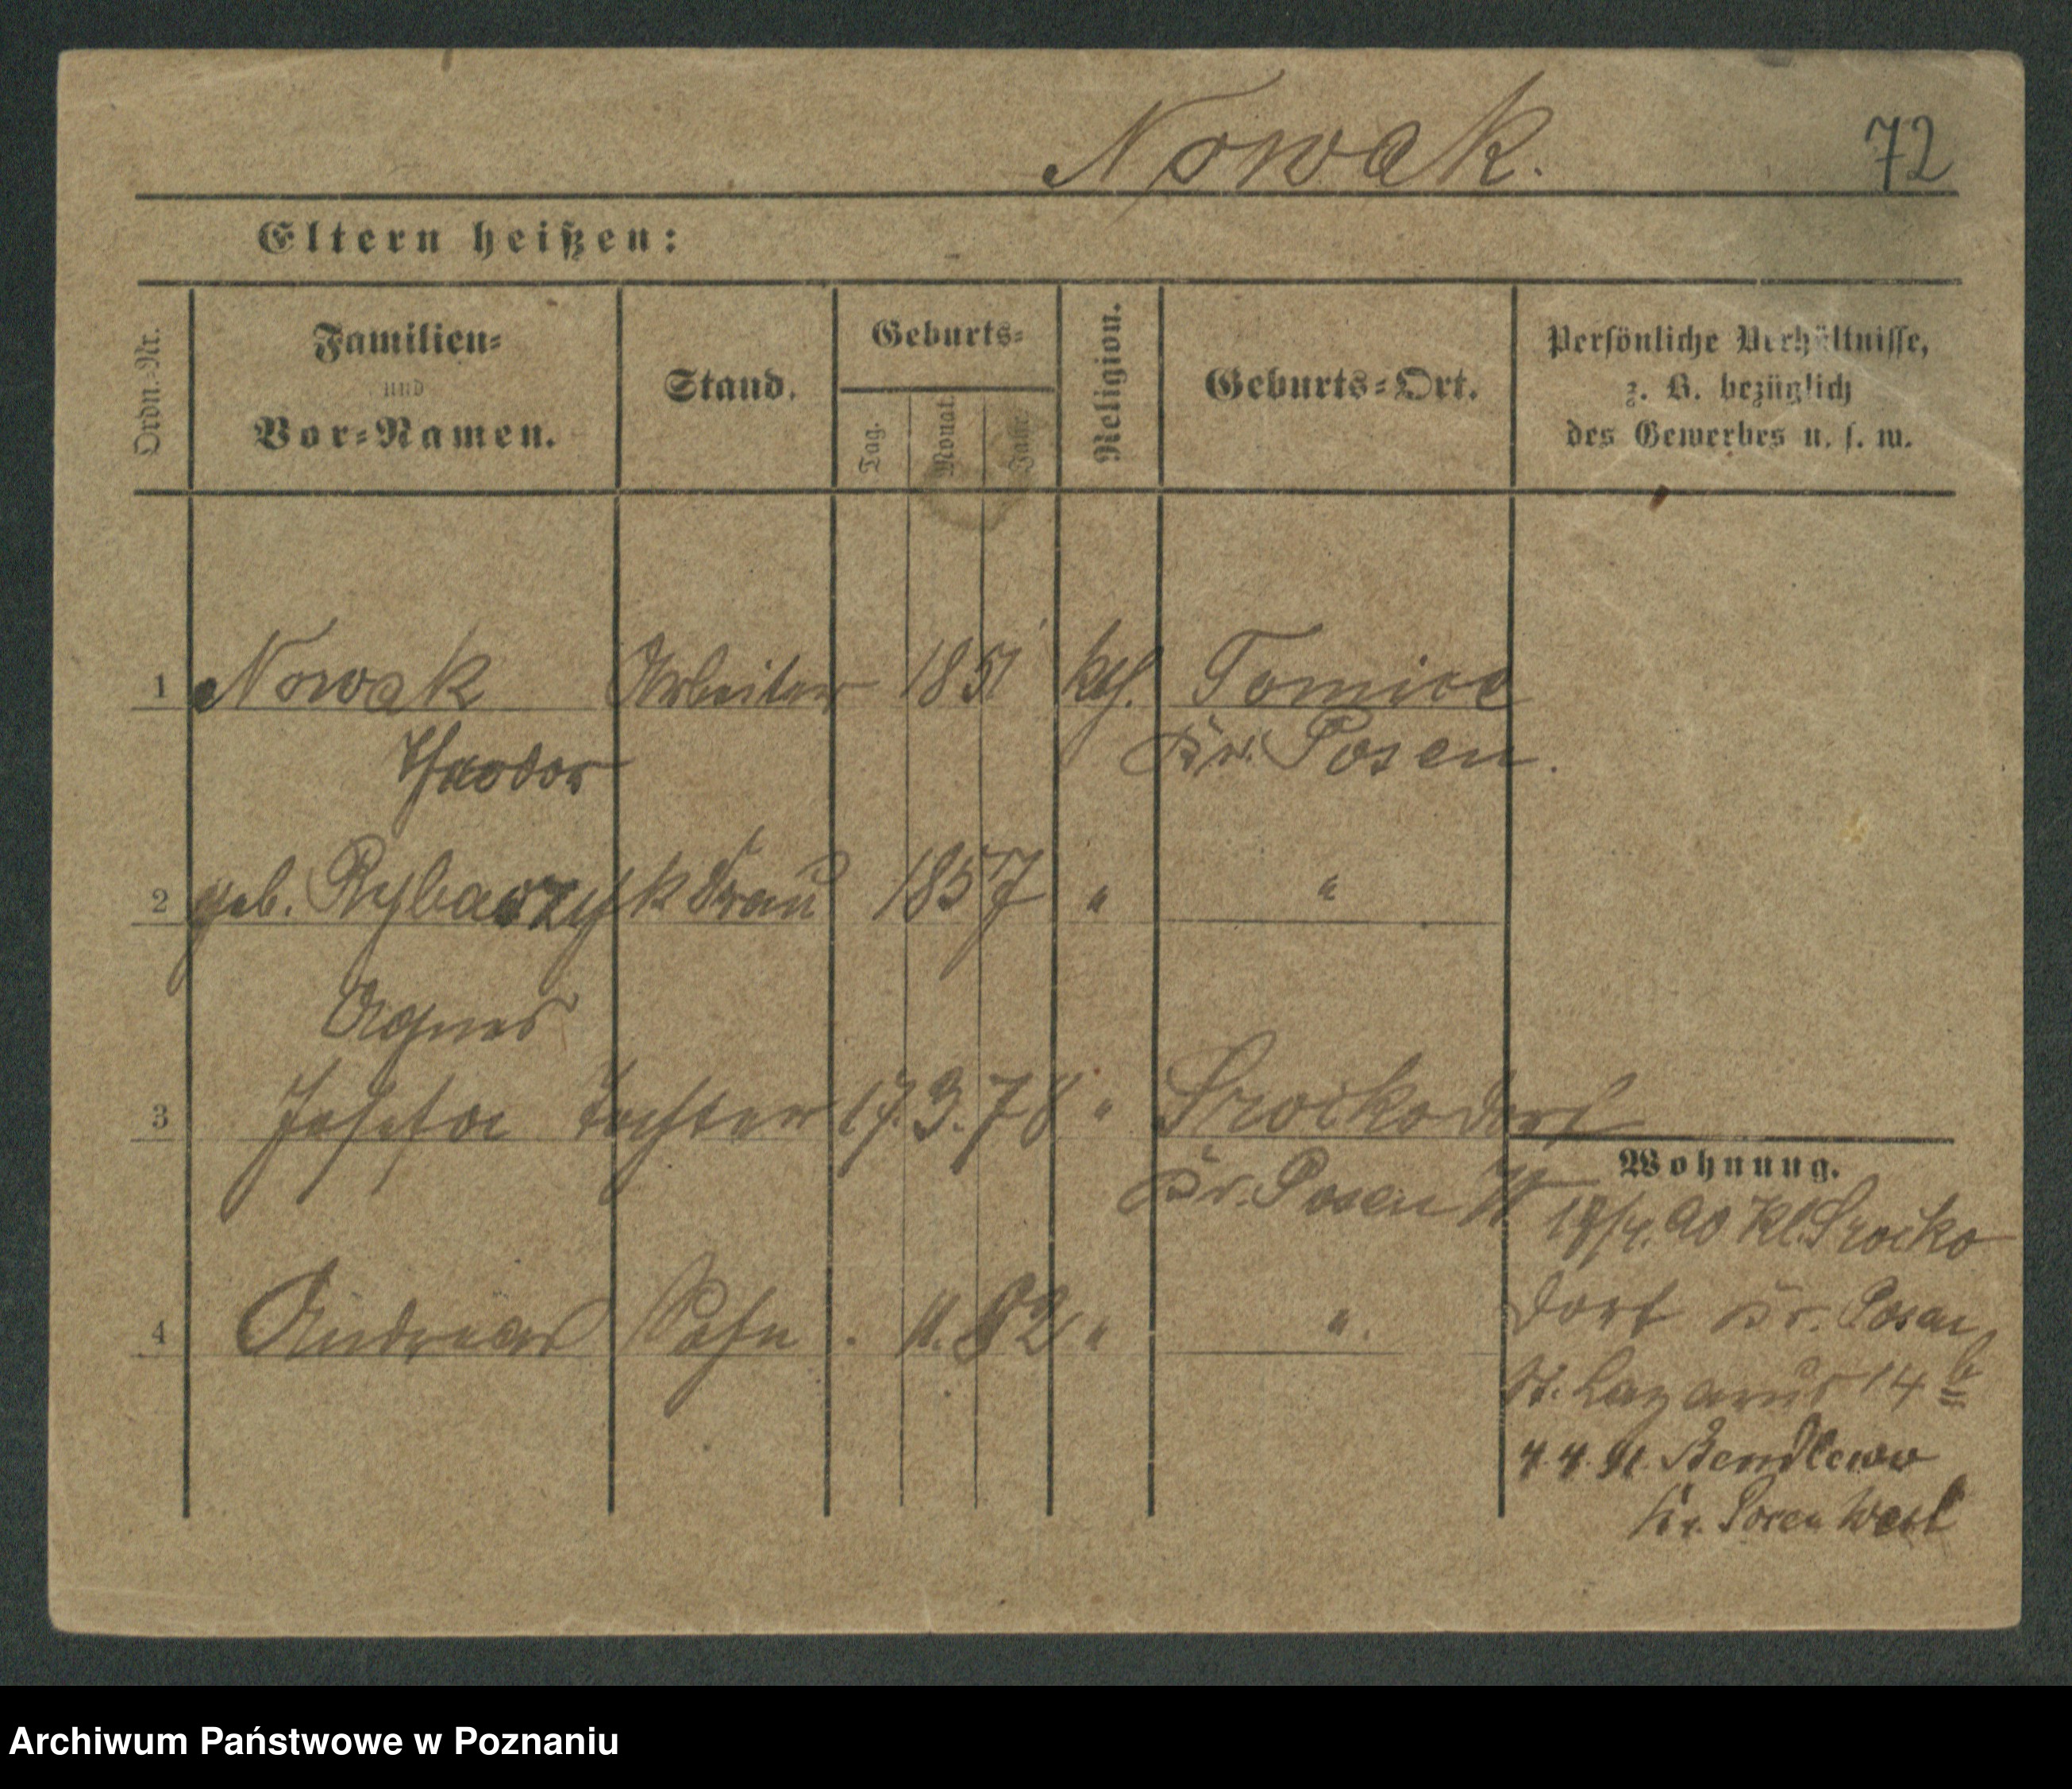 Nowak. 72
Eltern heißen:
Ordn.-Nr.
Familien-
und
Vor-Namen.
Stand.
Geburts-
Tag. Monat. Jahr.
Religion.
Geburts-Ort.
Persönliche Verhältnisse,
z. B. bezüglich
des Gewerbes u. s. w.
1 Nowak Arbeiter 1851 kth. Tomice
Theodor Kr. Posen.
2 geb. Rybarczyk Frau 1857 " "
Agnes
3 Josefa Tochter 17.3.78 " Sroikodorf
Kr. Posen W.
4 Andreas Sohn . 11.82 " ".
Wohnung.
90 Kl. Sroiko
dorf Kr. Posen
St. Lazarus 14
4.4.91. Bendlewo
Kr. Posen West
Archiwum Państwowe w Poznaniu